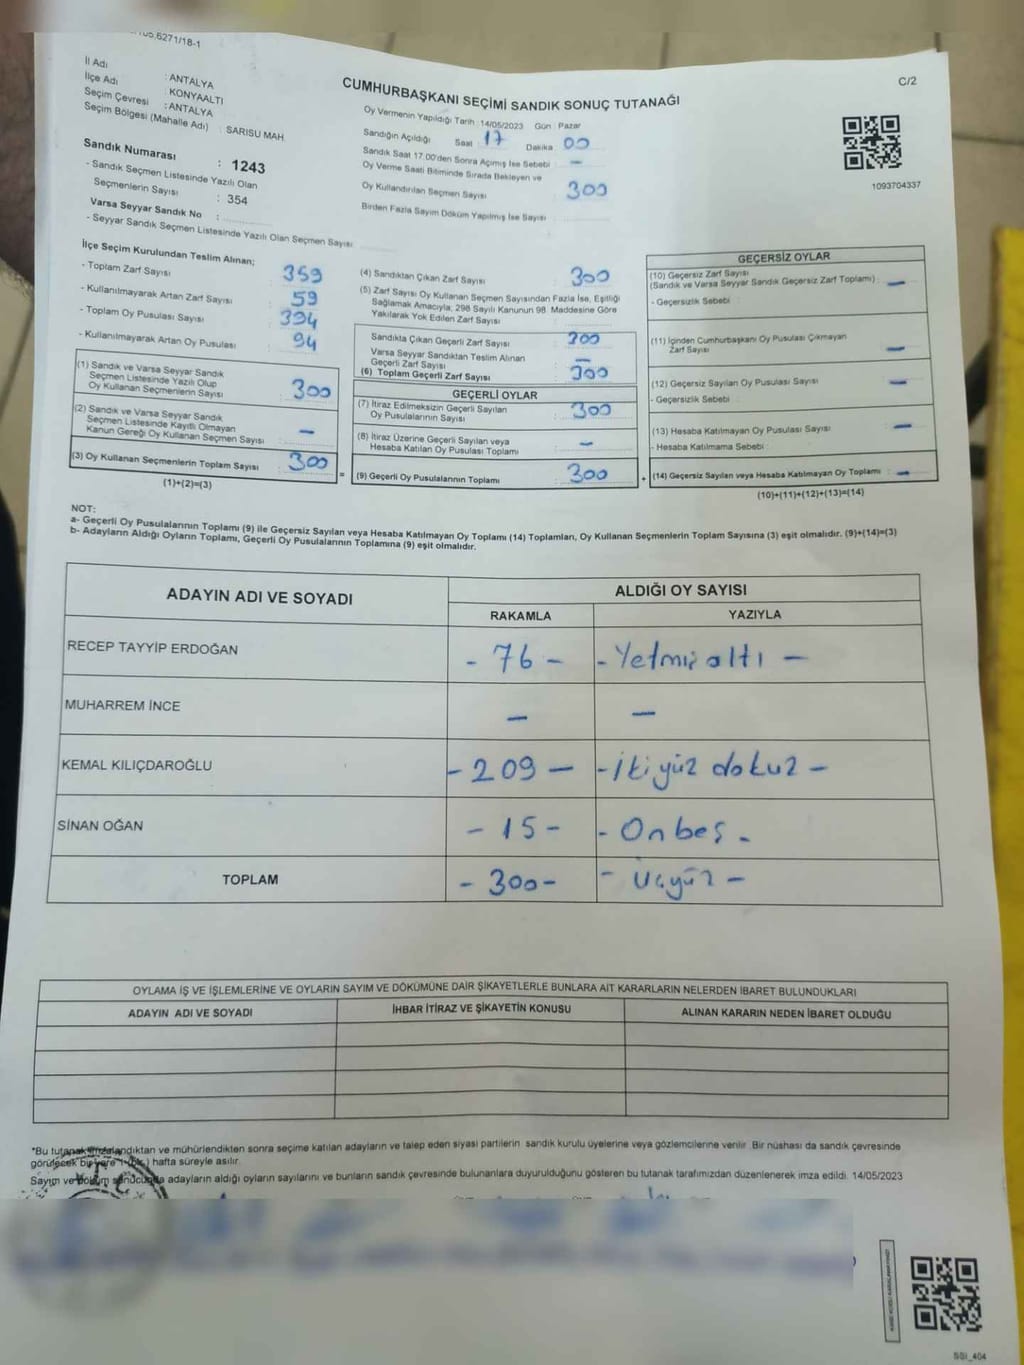 C/2
İl Adı : ANTALYA
İlçe Adı : KONYAALTI
Seçim Çevresi : ANTALYA
Seçim Bölgesi (Mahalle Adı) : SARISU MAH.
Sandık Numarası : 1243
- Sandık Seçmen Listesinde Yazılı Olan
Seçmenlerin Sayısı : 354
Varsa Seyyar Sandık No :
- Seyyar Sandık Seçmen Listesinde Yazılı Olan Seçmen Sayısı
CUMHURBAŞKANI SEÇİMİ SANDIK SONUÇ TUTANAĞI
Oy Vermenin Yapıldığı Tarih : 14/05/2023 Gün : Pazar
Sandığın Açıldığı Saat : 17 Dakika : 00
Sandık Saat 17.00'den Sonra Açımış İse Sebebi : —
Oy Verme Saati Bitiminde Sırada Bekleyen ve
Oy Kullandırılan Seçmen Sayısı 300
Birden Fazla Sayım Döküm Yapılmış İse Sayısı
1093704337
İlçe Seçim Kurulundan Teslim Alınan;
- Toplam Zarf Sayısı 359
- Kullanılmayarak Artan Zarf Sayısı 59
- Toplam Oy Pusulası Sayısı 394
- Kullanılmayarak Artan Oy Pusulası 94
(1) Sandık ve Varsa Seyyar Sandık
Seçmen Listesinde Yazılı Olup
Oy Kullanan Seçmenlerin Sayısı 300
(2) Sandık ve Varsa Seyyar Sandık
Seçmen Listesinde Kayıtlı Olmayan
Kanun Gereği Oy Kullanan Seçmen Sayısı —
(3) Oy Kullanan Seçmenlerin Toplam Sayısı 300
(1)+(2)=(3)
(4) Sandıktan Çıkan Zarf Sayısı 300
(5) Zarf Sayısı Oy Kullanan Seçmen Sayısından Fazla İse, Eşitliği
Sağlamak Amacıyla; 298 Sayılı Kanunun 98. Maddesine Göre
Yakılarak Yok Edilen Zarf Sayısı
Sandıkta Çıkan Geçerli Zarf Sayısı 300
Varsa Seyyar Sandıktan Teslim Alınan
Geçerli Zarf Sayısı —
(6) Toplam Geçerli Zarf Sayısı 300
GEÇERLİ OYLAR
(7) İtiraz Edilmeksizin Geçerli Sayılan
Oy Pusulalarının Sayısı 300
(8) İtiraz Üzerine Geçerli Sayılan veya
Hesaba Katılan Oy Pusulası Toplamı —
= (9) Geçerli Oy Pusulalarının Toplamı 300
GEÇERSİZ OYLAR
(10) Geçersiz Zarf Sayısı
(Sandık ve Varsa Seyyar Sandık Geçersiz Zarf Toplamı) —
- Geçersizlik Sebebi
(11) İçinden Cumhurbaşkanı Oy Pusulası Çıkmayan
Zarf Sayısı —
(12) Geçersiz Sayılan Oy Pusulası Sayısı —
- Geçersizlik Sebebi
(13) Hesaba Katılmayan Oy Pusulası Sayısı —
- Hesaba Katılmama Sebebi
+ (14) Geçersiz Sayılan veya Hesaba Katılmayan Oy Toplamı —
(10)+(11)+(12)+(13)=(14)
NOT:
a- Geçerli Oy Pusulalarının Toplamı (9) ile Geçersiz Sayılan veya Hesaba Katılmayan Oy Toplamı (14) Toplamları, Oy Kullanan Seçmenlerin Toplam Sayısına (3) eşit olmalıdır. (9)+(14)=(3)
b- Adayların Aldığı Oyların Toplamı, Geçerli Oy Pusulalarının Toplamına (9) eşit olmalıdır.
ADAYIN ADI VE SOYADI ALDIĞI OY SAYISI
RAKAMLA YAZIYLA
RECEP TAYYİP ERDOĞAN - 76 - - Yetmiş altı -
MUHARREM İNCE — —
KEMAL KILIÇDAROĞLU - 209 - - İkiyüz dokuz -
SİNAN OĞAN - 15 - - Onbeş -
TOPLAM - 300 - - Üçyüz -
OYLAMA İŞ VE İŞLEMLERİNE VE OYLARIN SAYIM VE DÖKÜMÜNE DAİR ŞİKAYETLERLE BUNLARA AİT KARARLARIN NELERDEN İBARET BULUNDUKLARI
ADAYIN ADI VE SOYADI İHBAR İTİRAZ VE ŞİKAYETİN KONUSU ALINAN KARARIN NEDEN İBARET OLDUĞU
*Bu tutanak imzalandıktan ve mühürlendikten sonra seçime katılan adayların ve talep eden siyasi partilerin sandık kurulu üyelerine veya gözlemcilerine verilir. Bir nüshası da sandık çevresinde
görülecek bir yere 1 (bir) hafta süreyle asılır.
Sayım ve döküm sonucunda adayların aldığı oyların sayılarını ve bunların sandık çevresinde bulunanlara duyurulduğunu gösteren bu tutanak tarafımızdan düzenlenerek imza edildi. 14/05/2023
T.C.
SSI_404